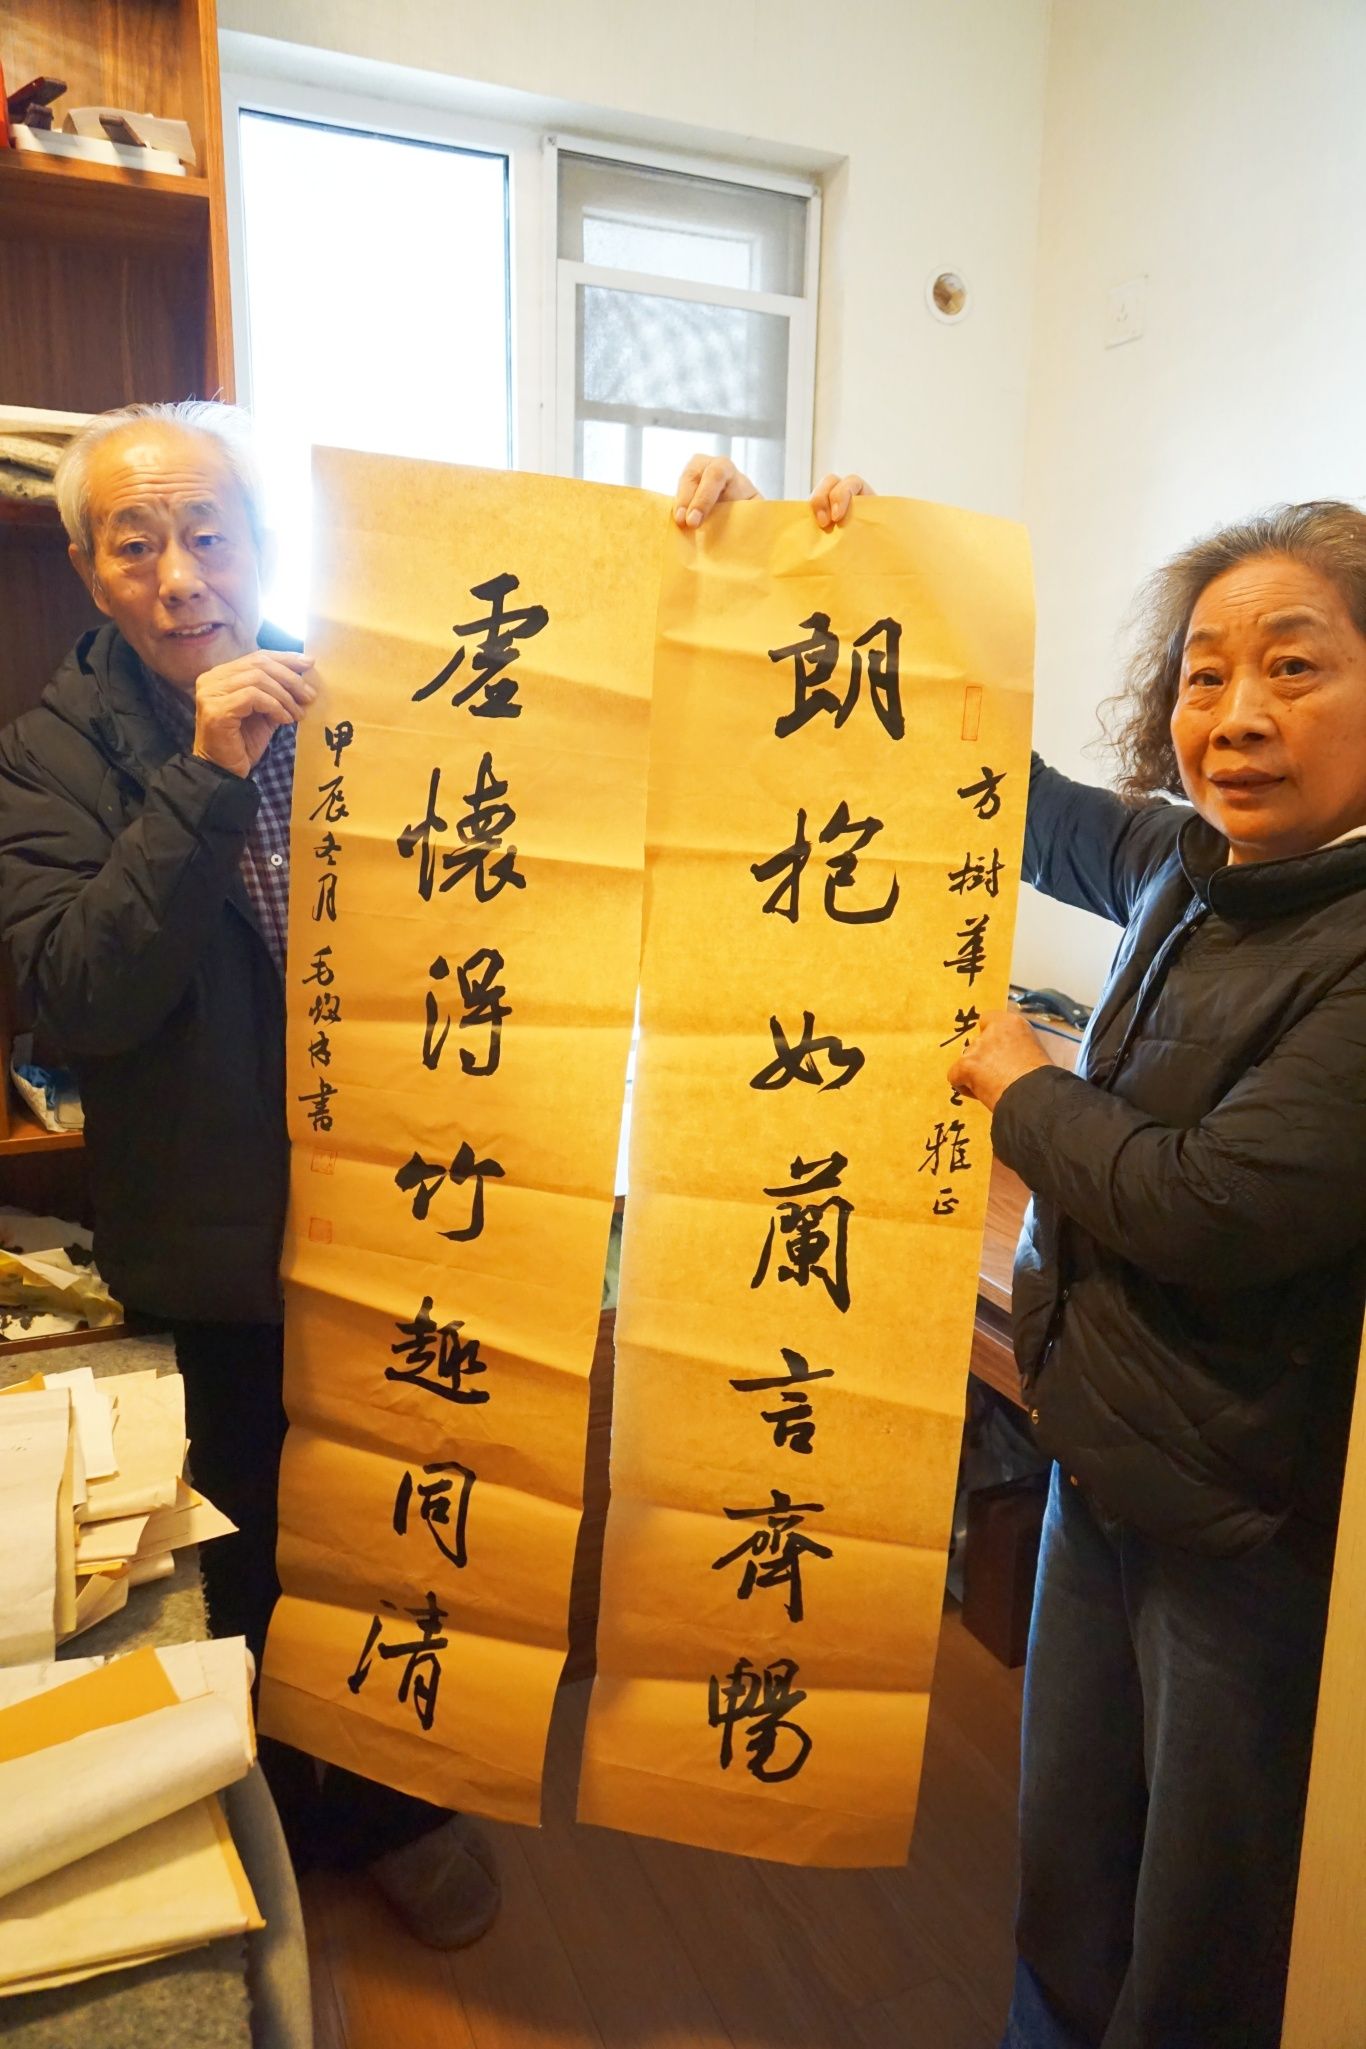 方樹華雅正
朗抱如蘭言齊暢
虛懷得竹趣同清
甲辰冬月毛書